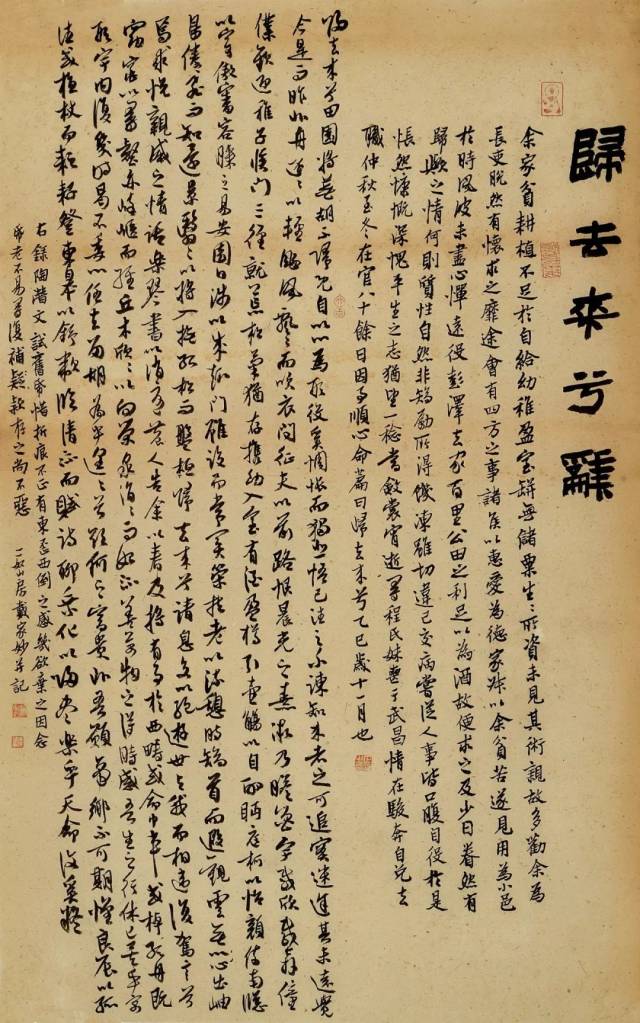 歸去來兮辭
余家貧耕植不足於自給幼稚盈室缾無儲粟生生所資未見其術親故多勸余為
長吏脫然有懷求之靡途會有四方之事諸侯以惠愛為德家叔以余貧苦遂見用為小邑
於時風波未盡心憚遠役彭澤去家百里公田之利足以為酒故便求之及少日眷然有
歸歟之情何則質性自然非矯勵所得饑凍雖切違己交病嘗從人事皆口腹自役於是
悵然慷慨深愧平生之志猶望一稔當斂裳宵逝尋程氏妹喪于武昌情在駿奔自免去
職仲秋至冬在官八十餘日因事順心命篇曰歸去來兮乙巳歲十一月也
歸去來兮田園將蕪胡不歸既自以心為形役奚惆悵而獨悲悟已往之不諫知來者之可追實迷途其未遠覺
今是而昨非舟遙遙以輕颺風飄飄而吹衣問征夫以前路恨晨光之熹微乃瞻衡宇載欣載奔僮
僕歡迎稚子候門三徑就荒松菊猶存攜幼入室有酒盈樽引壺觴以自酌眄庭柯以怡顏倚南牕
以寄傲審容膝之易安園日涉以成趣門雖設而常關策扶老以流憩時矯首而遐觀雲無心以出岫
鳥倦飛而知還景翳翳以將入撫孤松而盤桓歸去來兮請息交以絕遊世與我而相違復駕言兮
焉求悅親戚之情話樂琴書以消憂農人告余以春及將有事於西疇或命巾車或棹孤舟既
窈窕以尋壑亦崎嶇而經丘木欣欣以向榮泉涓涓而始流善萬物之得時感吾生之行休已矣乎寓
形宇內復幾時曷不委心任去留胡為乎遑遑兮欲何之富貴非吾願帝鄉不可期懷良辰以孤
往或植杖而耘耔登東皋以舒嘯臨清流而賦詩聊乘化以歸盡樂乎天命復奚疑
右錄陶潛文試舊帋惜折痕不正有東歪西倒之感幾欲棄之因念
帋老不易尋復補款存之尚不惡 山居戴家妙并記